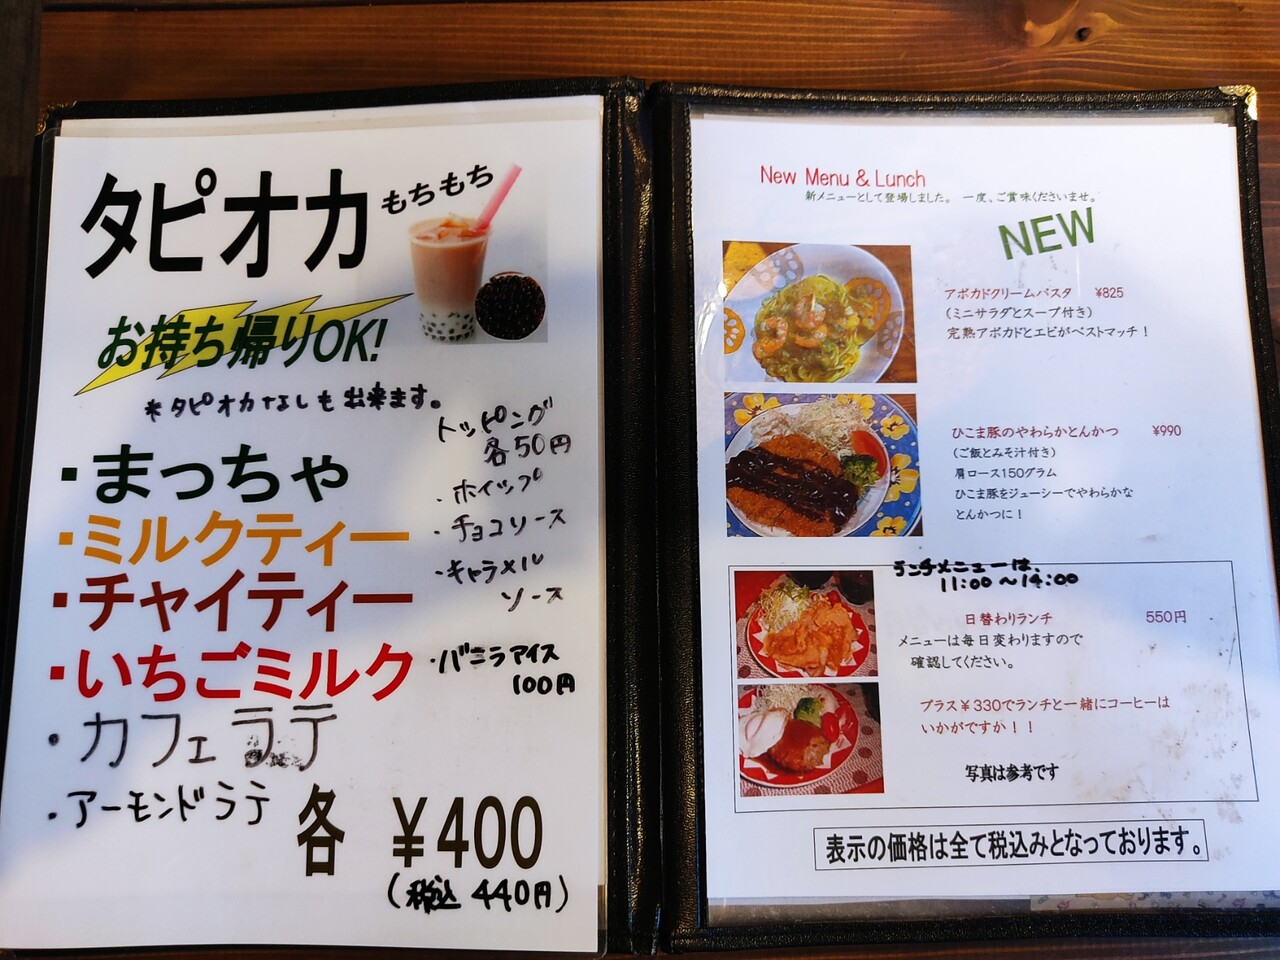 タピオカ
もちもち
お持ち帰りOK!
*タピオカなしも出来ます。
・まっちゃ
・ミルクティー
・チャイティー
・いちごミルク
・カフェラテ
・アーモンドラテ
各 ¥400
(税込 440円)
トッピング
各50円
・ホイップ
・チョコソース
・キャラメル
ソース
・バニラアイス
100円
New Menu & Lunch
新メニューとして登場しました。 一度、ご賞味くださいませ。
NEW
アボカドクリームパスタ ¥825
(ミニサラダとスープ付き)
完熟アボカドとエビがベストマッチ！
ひこま豚のやわらかとんかつ ¥990
(ご飯とみそ汁付き)
肩ロース150グラム
ひこま豚をジューシーでやわらかな
とんかつに！
ランチメニューは、
11:00～14:00
日替わりランチ 550円
メニューは毎日変わりますので
確認してください。
プラス¥330でランチと一緒にコーヒーは
いかがですか！！
写真は参考です
表示の価格は全て税込みとなっております。